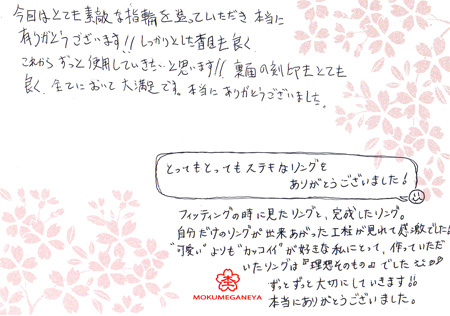 今回はとても素敵な指輪を造っていただき本当に
ありがとうございます!! しっかりとした着け心も良く
これから ずっと使用していきたいと思います!! 裏面の刻印もとても
良く、全てにおいて大満足です。本当にありがとうございました。
とってもとってもステキなリングを
ありがとうございました!
フィッティングの時に見たリングと、完成したリング。
自分だけのリングが出来あがった工程が見れて感激でした!
"可愛い"よりも"カッコイイ"が好きな私にとって、作っていただ
いたリングは『理想そのもの』でした
ずっとずっと大切にしていきます!!
本当にありがとうございました。
MOKUMEGANEYA